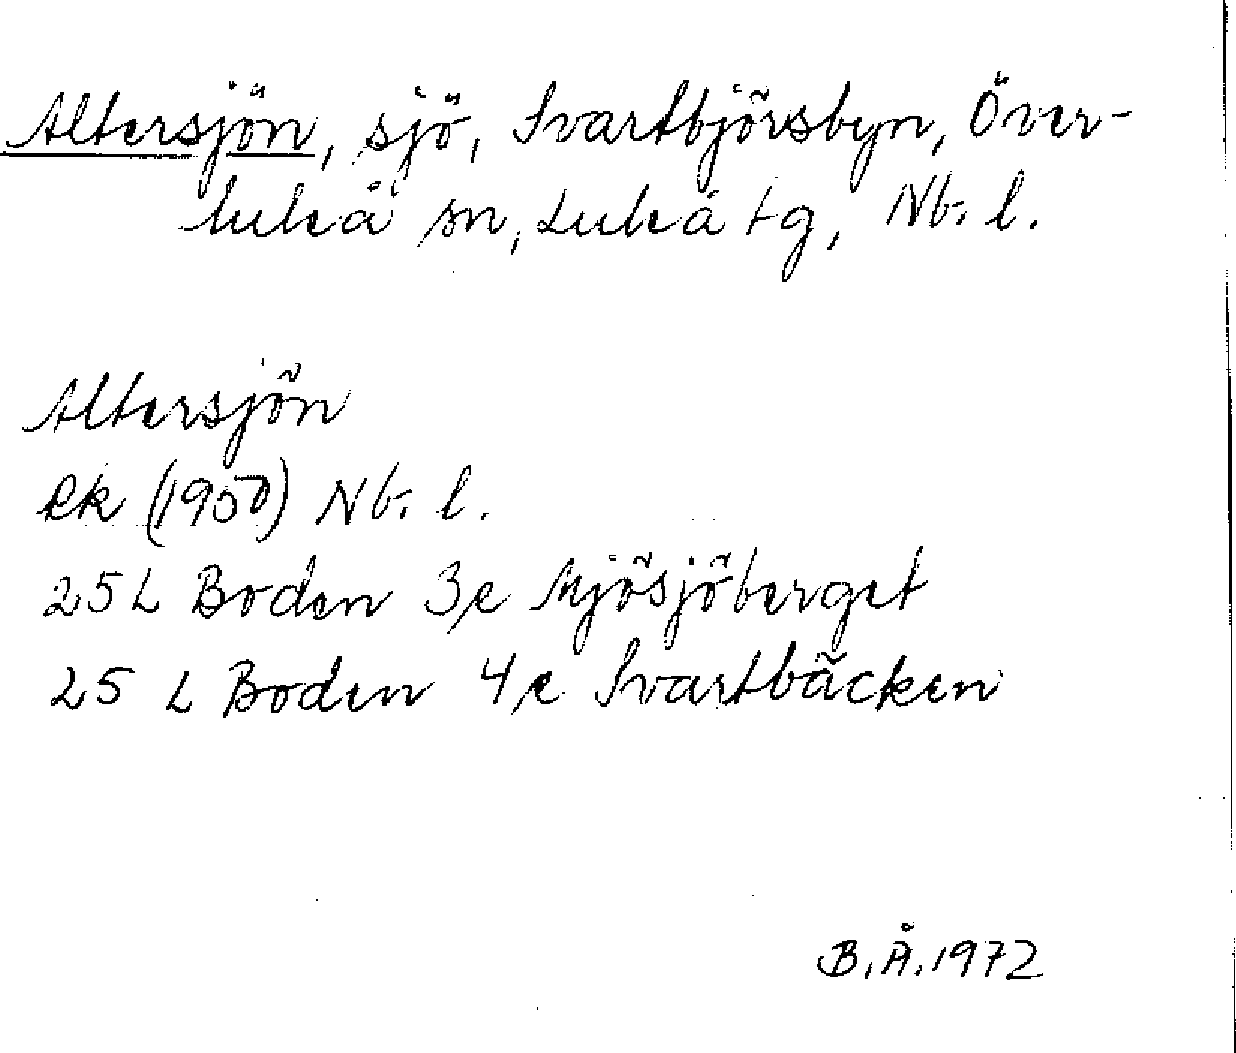 Altersjön, sjö, Svartbjörsbyn, Över-
luleå sn, Luleå tg, Nb. l.
Altersjön
Rk (1950) Nb. l.
25 L Boden 3 e Mjösjöberget
25 L Boden 4 e Svartbäcken
B. Å. 1972